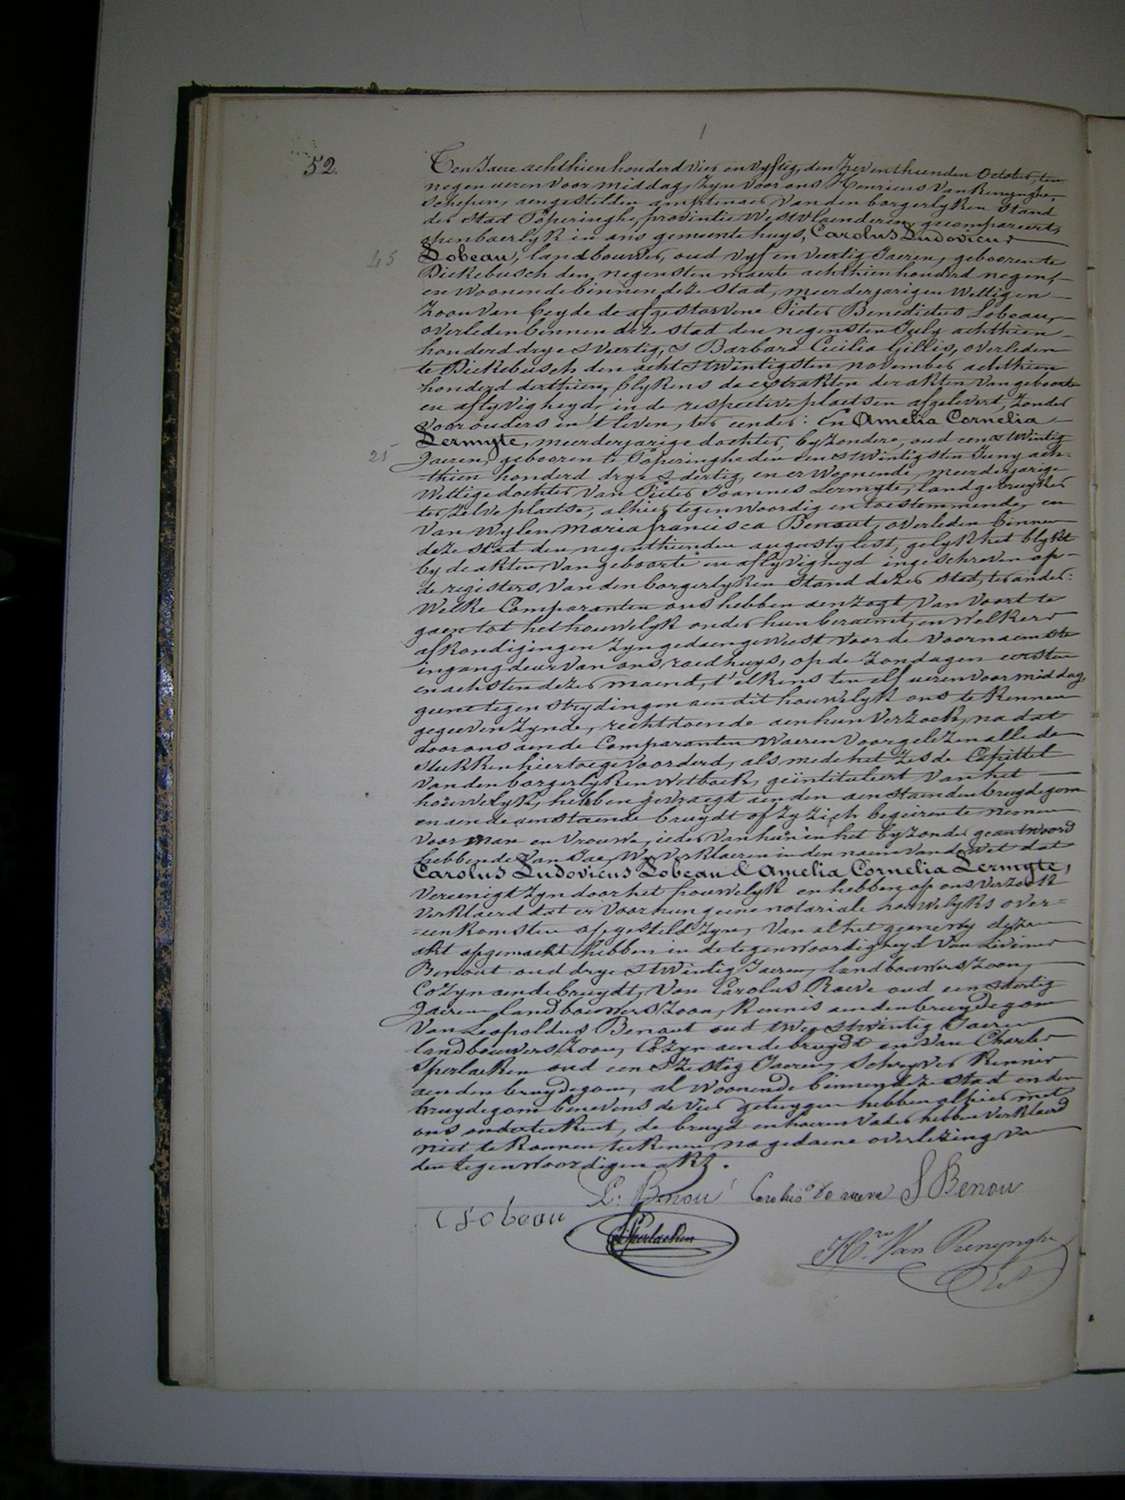 1
52.
Ten Jaere achthien honderd vier en vyftig, den Zeventhienden October, ten
negen ueren voor middag, Zyn voor ons Henricus Van Renynghe,
Schepen, aengestelden amptenaer van den borgerlyken Stand
der Stad Poperinghe, provintie Westvlaenderen gecompareert,
openbaerlyk in ons gemeente huys, Carolus Ludovicus
45
Lobeau, landbouwer, oud vyf en veertig Jaeren, geboren te
Dickebusch den negensten maerte achthien honderd negen,
en woonende binnen deze Stad, meerderjarigen Wettigen
Zoon van beyde de afgestorvene Pieter Benedictus Lobeau,
overleden binnen deze Stad den negensten July achthien
honderd drye & veertig, & Barbara Cecilia Gillis, overleden
te Dickebusch den acht & twintigsten november achthien
honderd derthien, blykens de extrakten der akten van geboorte
en aflyvigheyd, in de respective plaetsen afgelevert, zonder
voorouders in 't leven, ter eender: En Amelia Cornelia
Lermyte, meerderjarige dochter, byzondere, oud een & twintig
21
Jaeren, geboren te Poperinghe den een & twintigsten Juny ach-
thien honderd drye & dertig, en er woonende, meerderjarige
Wettige dochter van Pieter Joannes Lermyte, landgebruyker
ter zelve plaetse, alhier tegenwoordig en toestemmende, en
van wylen Maria francisca Benout, overleden binnen
deze stad den negenthienden augusty lest, gelyk het blykt
by de akten van geboorte en aflyvigheyd ingeschreven op
de registers van den borgerlyken Stand dezer stad, ter ander:
Welke Comparanten ons hebben aenzogt van voort te
gaen tot het houwelyk onder hun beraemt, en welkers
afkondigingen Zyn gedaen geweest voor de voornaemste
ingang deur van ons raedhuys, op de Zondagen eersten
en achsten dezer maend, t'elkens ten elf ueren voor middag,
geene tegenstrydingen aen dit houwelyk ons te kennen
gegeeven Zynde, rechtdoende aen hun verzoek, na dat
door ons aen de Comparanten waeren voorgelezen alle de
stukken hiertoe gevoorderd, als mede het Zesde Capittel
van den borgerlyken wetboek, geïntituleert van het
houwelyk, hebben gevraegt aen den aenstaenden bruydegom
en aen de aenstaende bruydt of zy zich begeiren te nemen
voor man en vrouwe, ieder van hun in het byzonder geantwoord
hebbende van Jae, Wy verklaeren in den naem van de Wet dat
Carolus Ludovicus Lobeau & Amelia Cornelia Lermyte,
vereenigt Zyn door het houwelyk en hebben op ons verzoek
verklaerd dat er voor hun geene notariale houwelyks over-
=eenkomsten opgesteld Zyn, Van al het geene wy dezen
akt opgemaekt hebben in de tegenwoordigheyd van Livinus
Benout oud drye & twintig Jaeren, landbouwers Zoon,
Cozyn aen de bruydt, Van Carolus Raeve oud een & dertig
Jaeren landbouwers Zoon, Kennis aen den bruydegom
Van Leopoldus Benout oud twee & twintig Jaeren
landbouwers Zoon, Cozyn aen de bruydt en van Charles
Sperlaeken oud een & Zestig Jaeren, Schryver Kennis
aen den bruydegom, al woonende binnen deze stad en den
bruydegom benevens de vier getuygen hebben alhier met
ons onderteekent, de bruyd en haeren Vader hebben verklaerd
niet te konnen teekenen, na gedaene overlezing van
den tegenwoordigen akt.
L: Benou Carolus De raeve L Benou
C Lobeau Sperlaeken
Hri Van Renynghe